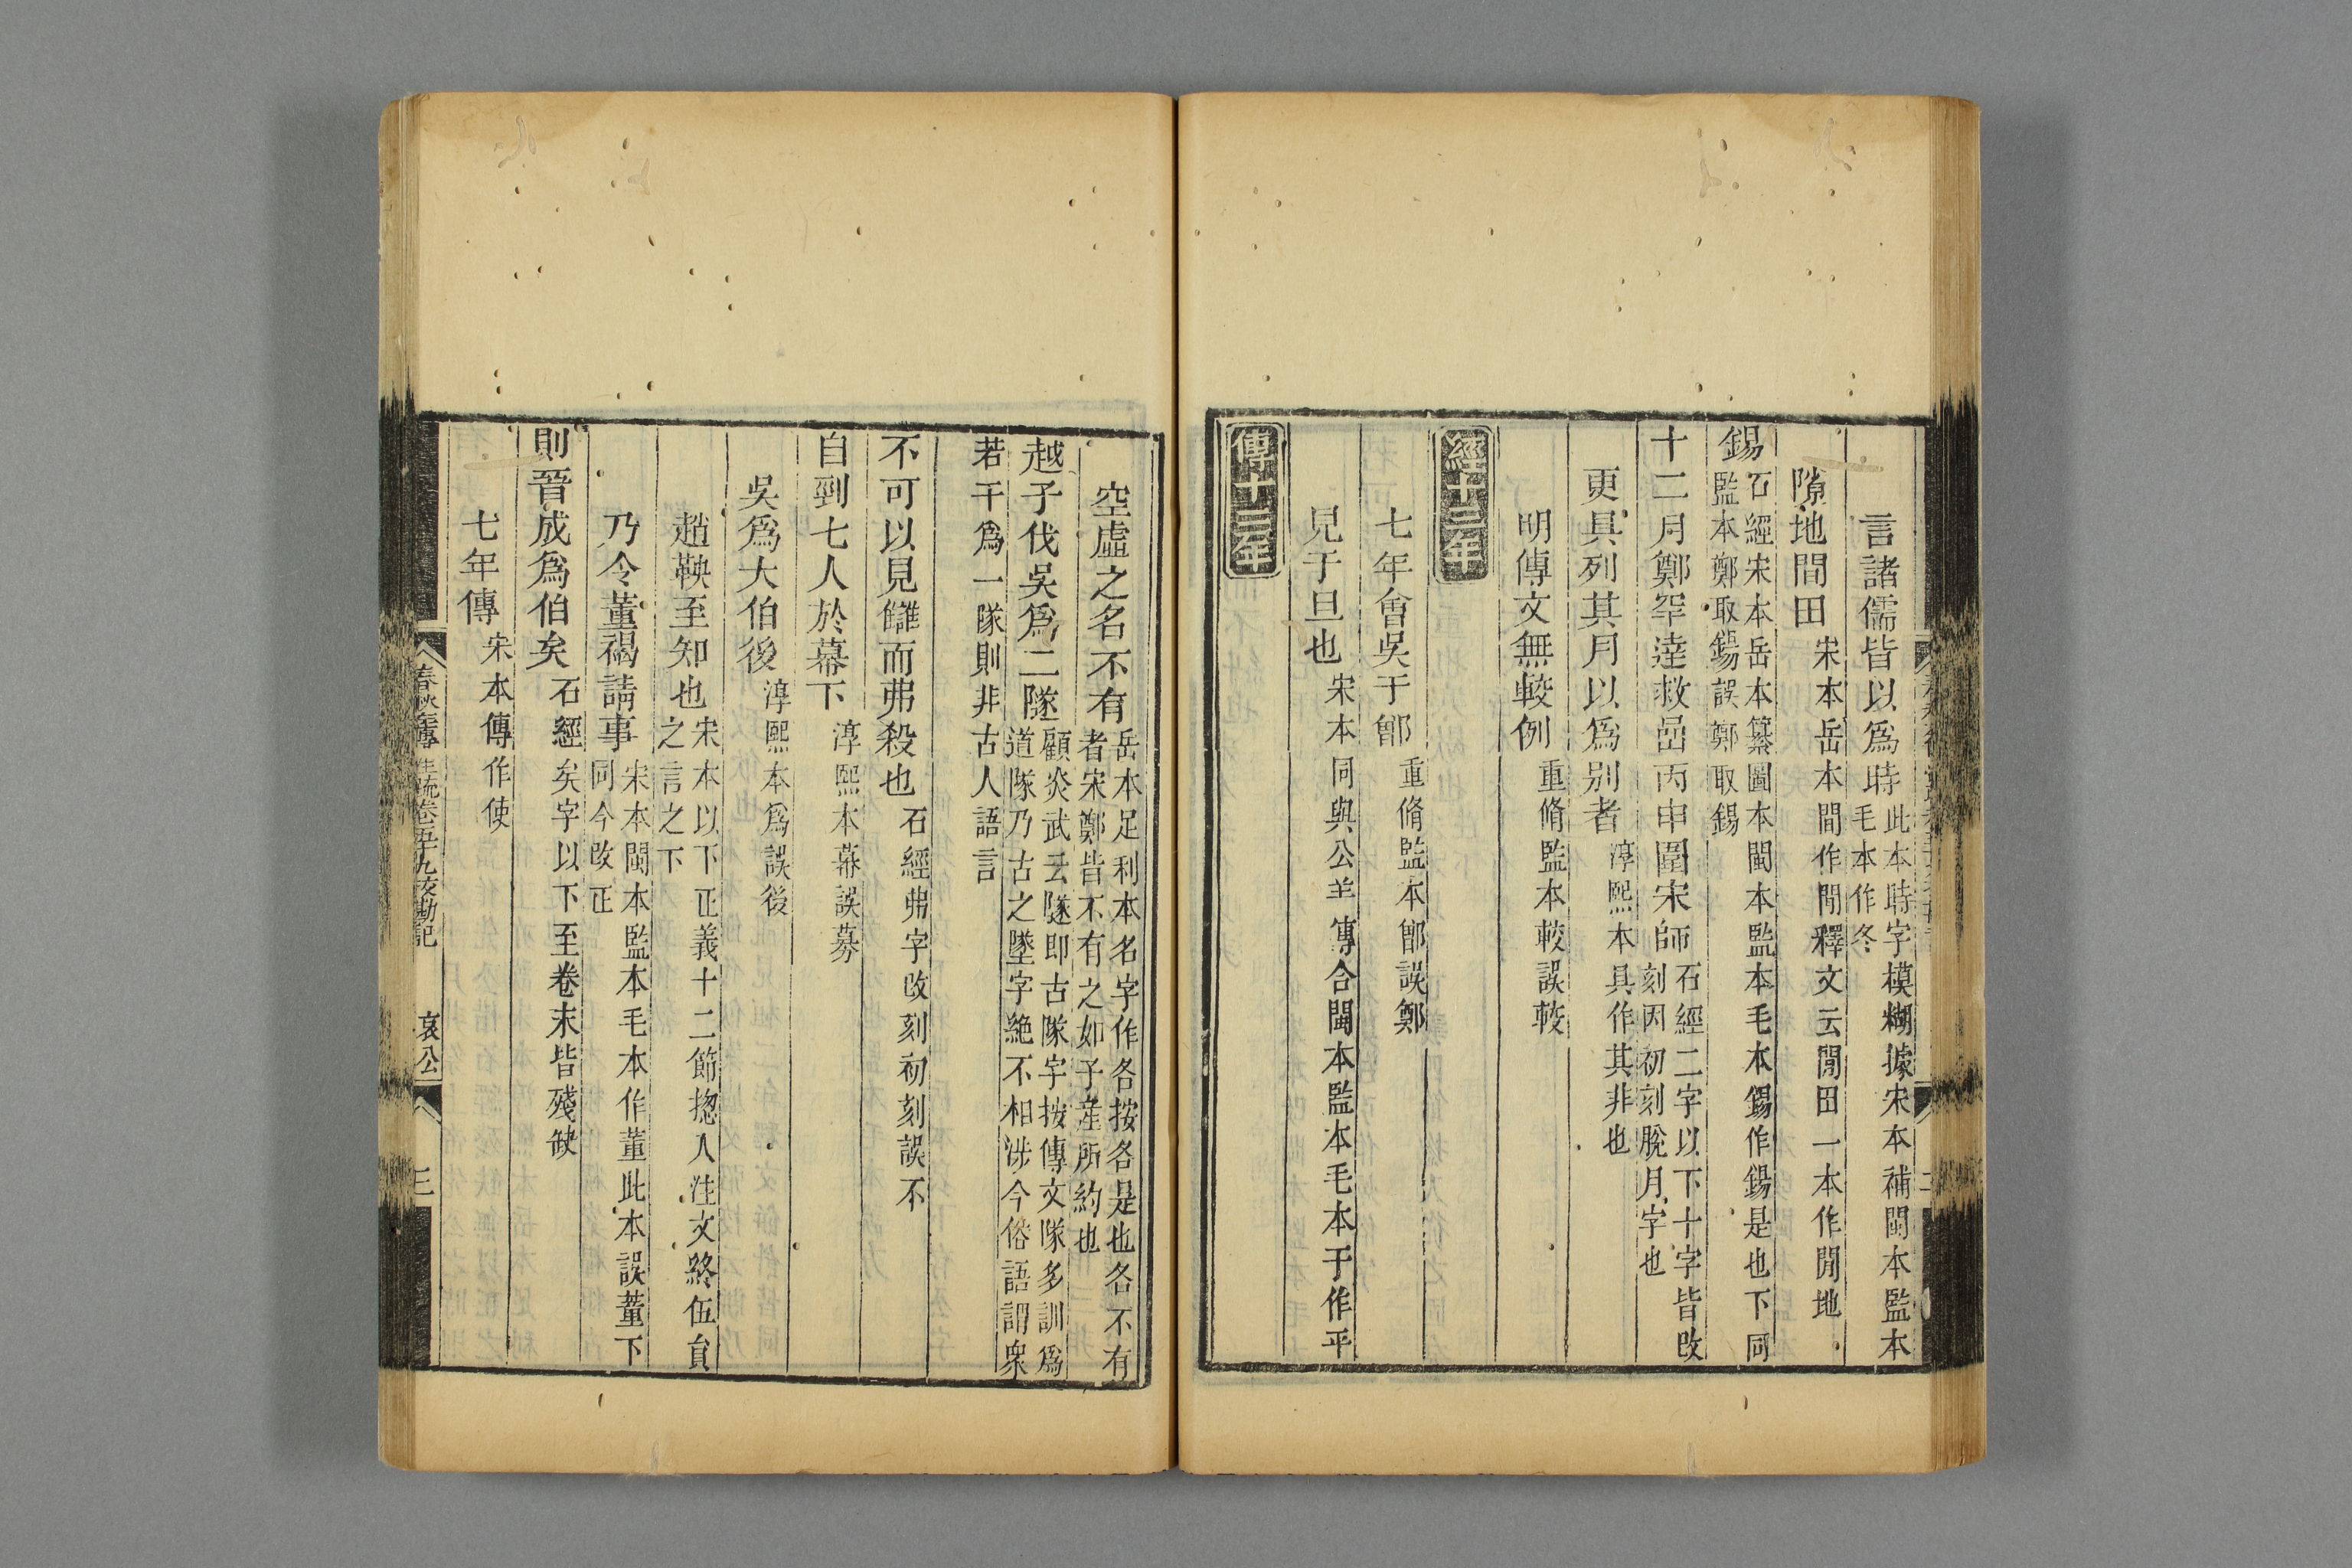 言諸儒皆以爲時此本時字模糊據宋本補閩本監本毛本作冬
隙地間田宋本岳本間作閒釋文云閒田一本作閒地
錫石經宋本岳本纂圖本閩本監本毛本錫作鍚是也下同監本鄭取鍚誤鄭取錫
十二月鄭罕達救嵒丙申圍宋師石經二字以下十字皆改刻因初刻脫月字也
更具列其月以爲別者淳熙本具作其非也
明傳文無較例重脩監本較誤轇
經十三年
七年會吳于鄫重脩監本鄫誤鄭
見于旦也宋本同與公羊傳合閩本監本毛本于作平
傳十三年
空虛之名不有岳本足利本名字作各按各是也各不有者宋鄭皆不有之如子產所約也
越子伐吳爲二隧顧炎武云隧即古隊字按傳文隊多訓爲道隊乃古之墜字絶不相涉今俗語謂衆
若干爲一隊則非古人語言
不可以見讎而弗殺也石經弗字改刻初刻誤不
自剄七人於幕下淳熙本幕誤募
吳爲大伯後淳熙本爲誤後
趙鞅至知也宋本以下正義十二節揔入注文終伍員之言之下
乃令董褐請事宋本閩本監本毛本作董此本誤蕫下同今改正
則晉成爲伯矣石經矣字以下至卷末皆殘缺
七年傳宋本傳作使
春秋左傳注疏卷五十九校勘記 哀公 三